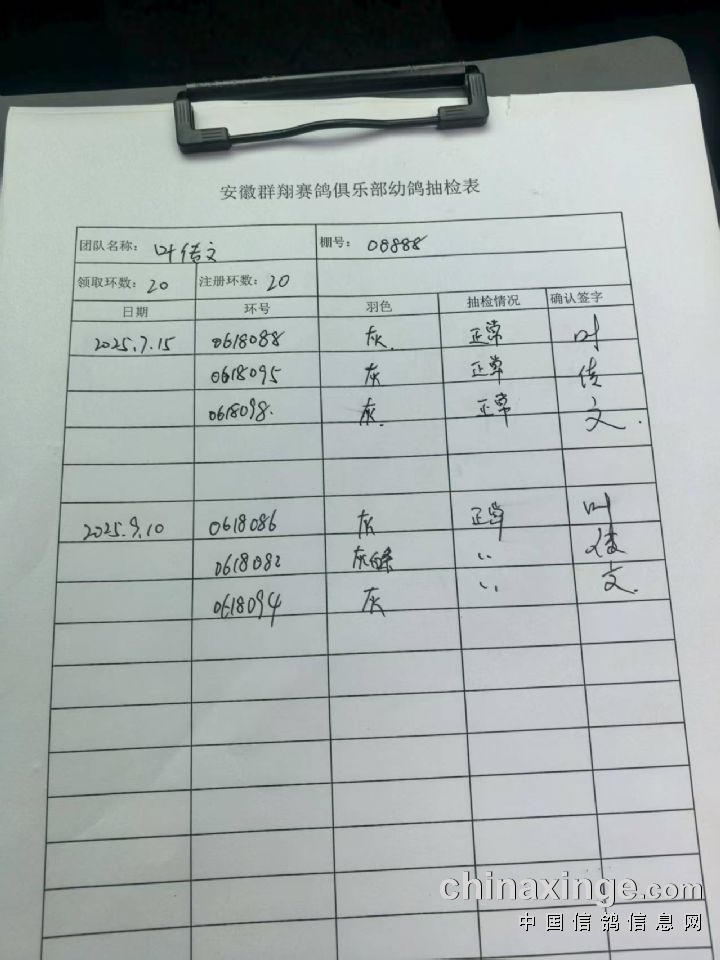 安徽群翔赛鸽俱乐部幼鸽抽检表
团队名称: 叶传文 棚号: 08888
领取环数: 20 注册环数: 20
日期 环号 羽色 抽检情况 确认签字
2025.7.15 0618088 灰. 正常 叶
0618095 灰 正常 传
0618098. 灰. 正常 文.
2025.9.10 0618086 灰 正常 叶
0618082 灰白条 〃 传
0618094 灰 〃 文.
chinaxinge.com
中国信鸽信息网